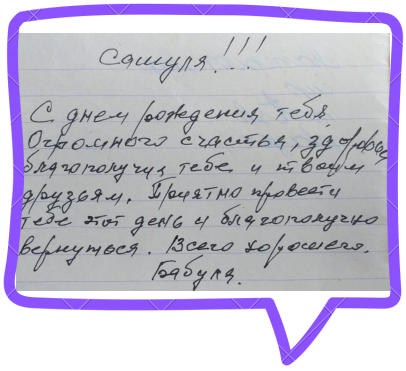 Сашуля!!!
С днем рождения тебя
Огромного счастья, здоровья
благополучия тебе и твоим
друзьям. Приятно провести
тебе этот день и благополучно
вернуться. Всего хорошего.
Бабуля.